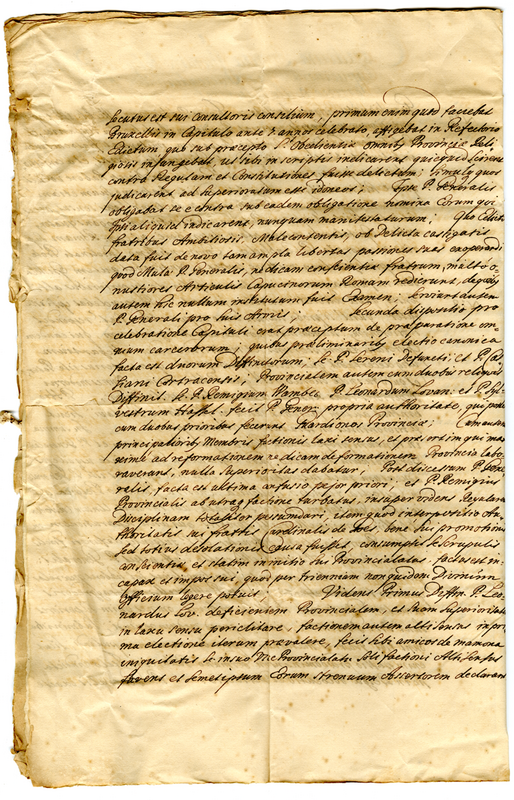 locutus est sui Consultoris consilium, primum enim quod faciebat
Bruxellis in Capitulo ante 7 annos celebrato, affigebat in Refectorio
Edictum quo sub præcepto S. Obedientiæ omnibus Provinciæ Reli
giosis injungebat, ut sibi in scriptis indicarent quicquid scirent
contra Regulam et Constitutiones fuisse delictum; simulq quos
judicarent ad superioratum esse idoneos; Ipse P. Generalis
obligabat se e contra sub eadem obligatione nomina eorum qui
ipsi aliquid indicarent, nunquam manifestaturum; Quo Edicto
fratribus Ambitiosis, Malecontentis, ob Delicta castigatis
data fuit de novo tam ampla libertas passiones suas
quod Mula P. Generalis, ne dicam conscientiæ fratrum, multo o
nustiores Articulis Capucinorum Romam redierint, de quibus
autem hic nullum institutum fuit Examen; serviunt autem
P. Generali pro suis Secunda dispositio pro
celebratione Capituli erat præceptum de præparatione om
nium carcerorum; quibus præliminaribus electio canonica
facta est duorum Diffinitorum, sc. P. Sereni Defuncti; et P.
Cortracensis; Provincialem autem cum duobus reliquis
Diffinit. sc. P. Remigium P. Leonardum Lovan: et P. Syl
vestrum Hassel. fecit P. Gener. propria authoritate, qui
cum duobus prioribus fecerunt Gardianos Provinciæ;
principalioribus Membris factionis laxi sensus, et præsertim qui max
xime ad reformationem ne dicam deformationem Provinciæ labo
raverant, nulla Superioritas dabatur, Post discessum P. Gene
ralis, facta est ultima confusio pejor priori, et P. Remigius
Provincialis ab utraq factione turbatus, insuper videns Regularem
Disciplinam totaliter pessumdari, item quod interpositio Au
thoritatis sui fratris Cardinalis de bene sui promotionis
sed totius desolationis causa fuisset, consumptus scrupulis
anxientiis, et statim in initio sui Provincialatus factus est in
capax et impos sui, quasi per triennium non quidem Divinum
Officium legere potuit; Videns Primus Deffin. P. Leo
nardus Lov. deficientem Provincialem, et suam superioritatem
in laxo sensu periclitare, factionem autem alti sensus in pri
ma electione iterum prævalere, fecit sibi amicos de mamona
iniquitatis se in suo ViceProvincialatu soli factioni Alti sensus
favens et semetipsum eorum strenuum Assertorem declarans